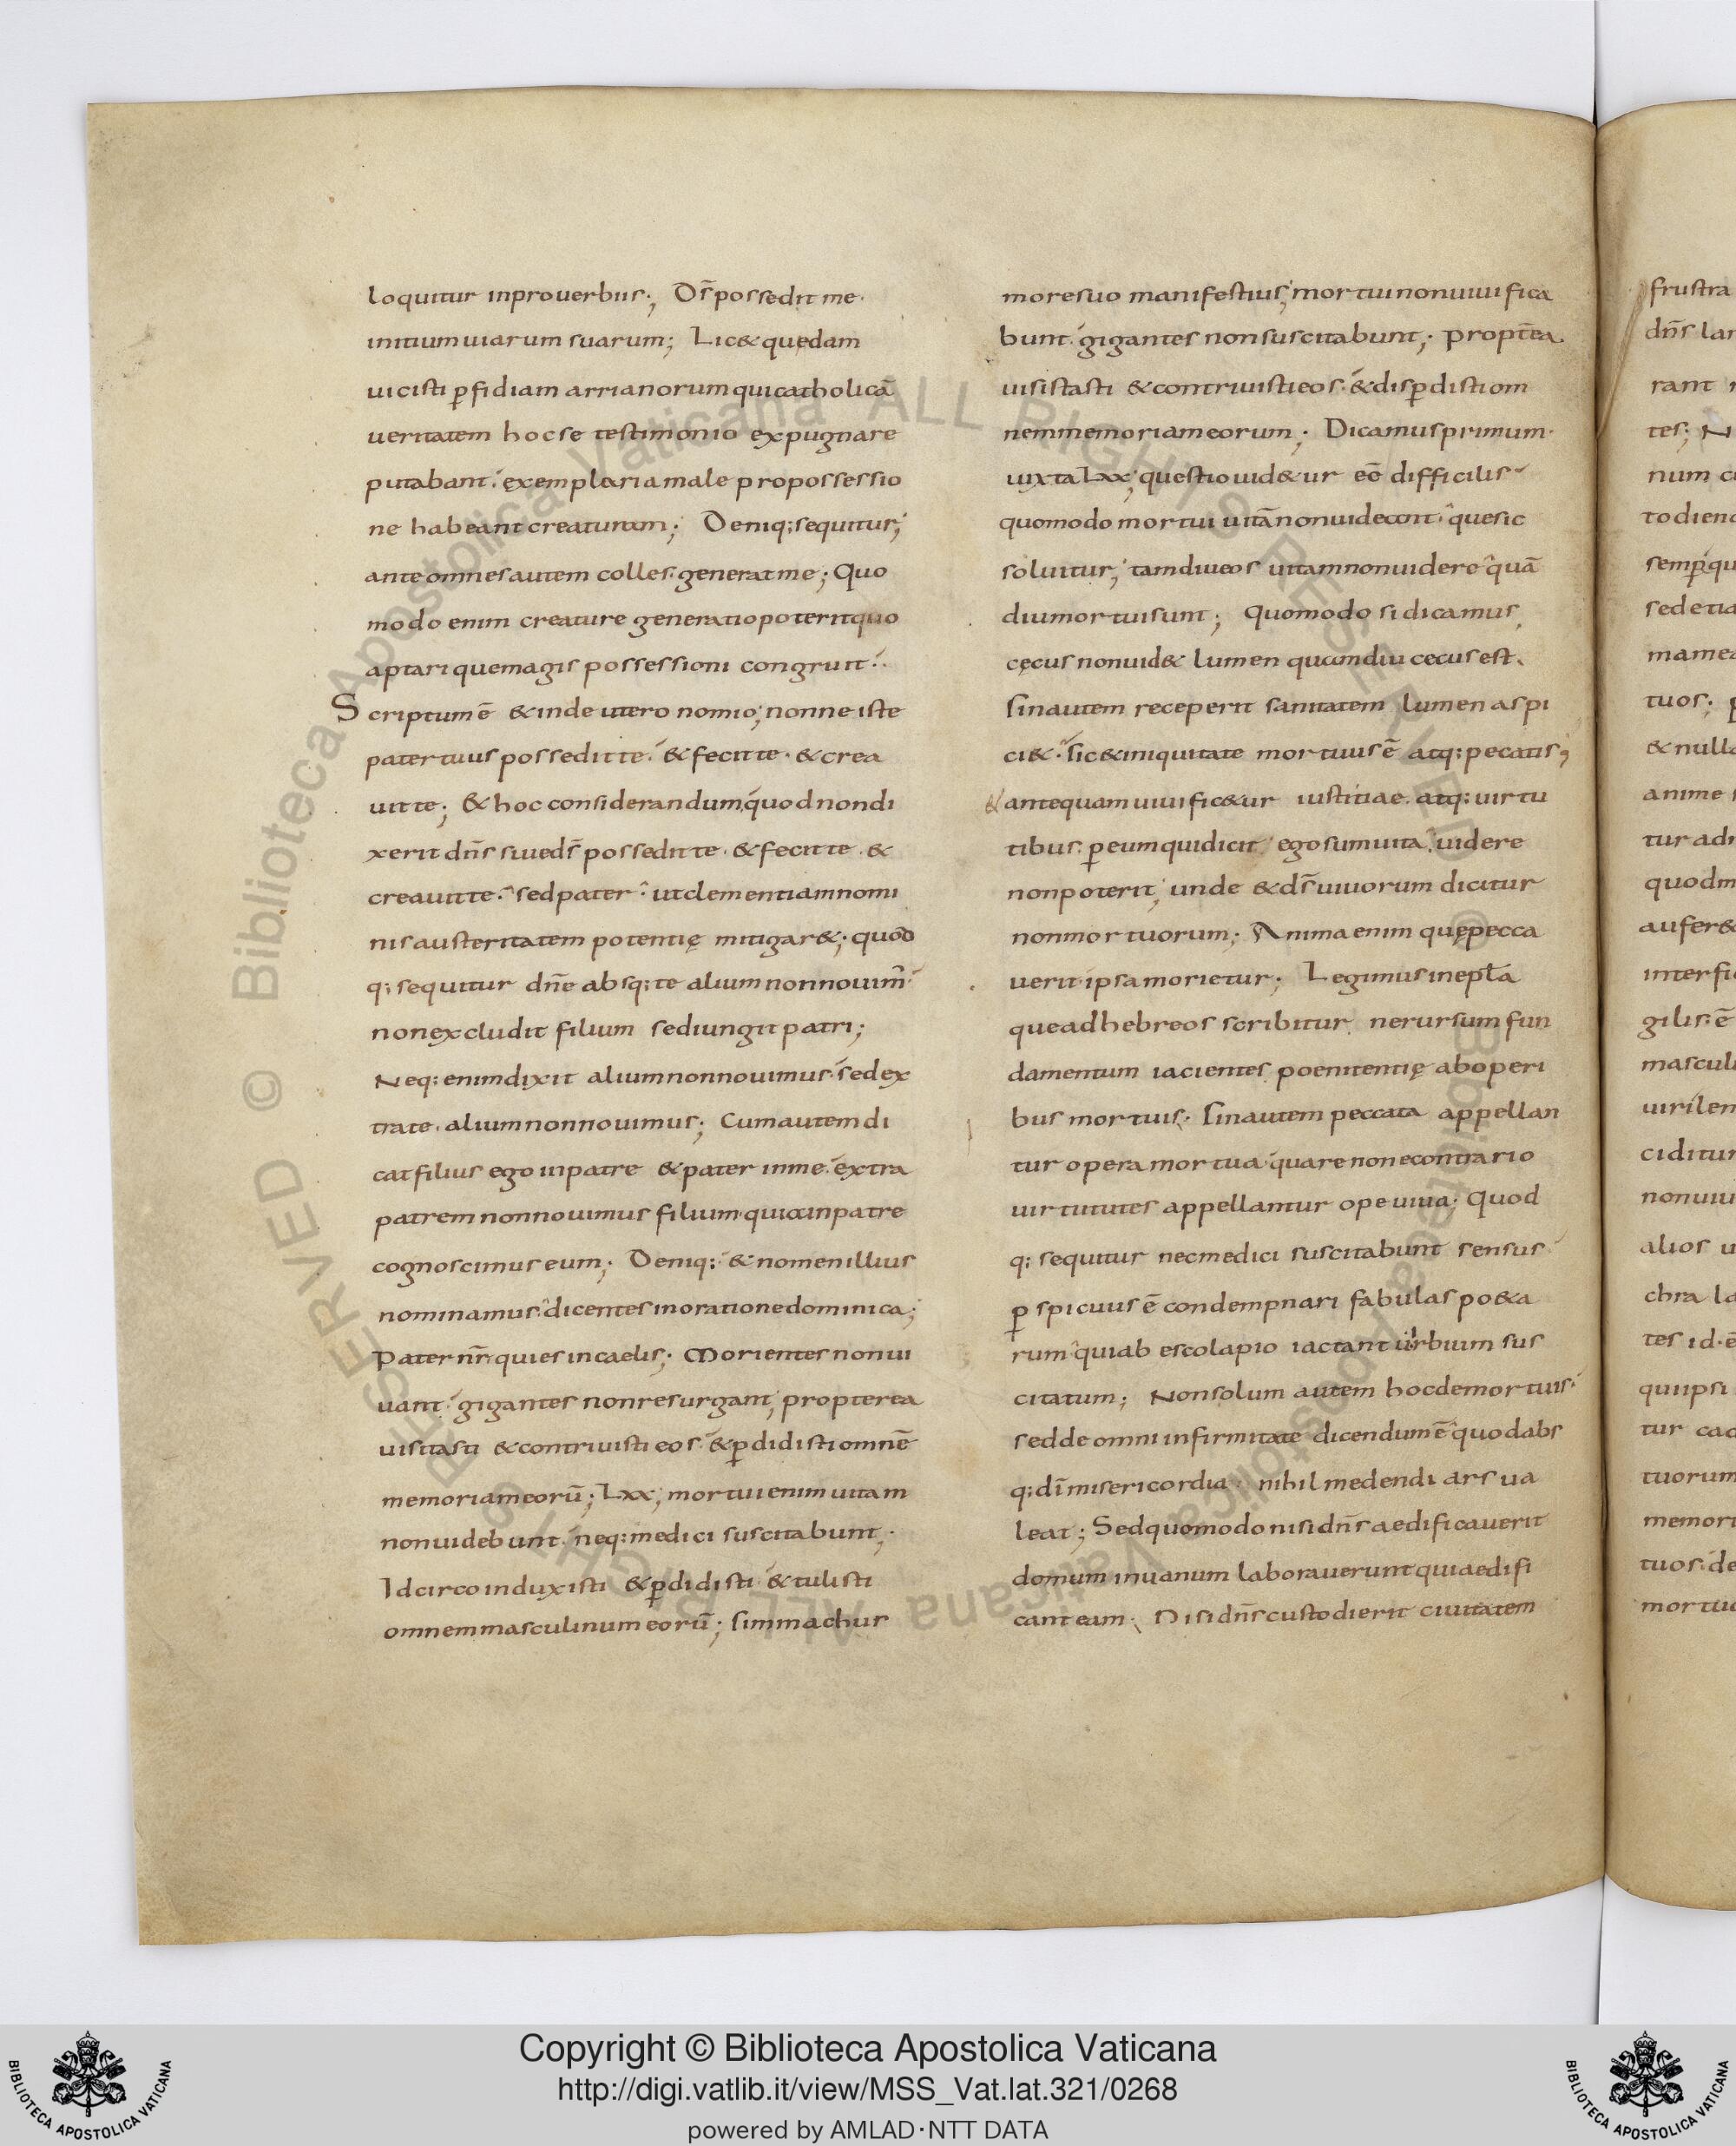 loquitur inprouerbiis·, Ds̄ possedit me·
initium uiarum suarum; Lic& quedam
uicisti ꝑfidiam arrianorum quicatholicā
ueritatem hocse testimonio expugnare
putabant· exemplaria male propossessio
ne habeant creaturam; Deniq; sequitur;
ante omnes autem colles· generat me; Quo
modo enim creature generatio poterit quo
aptari quemagis possessioni congruit·
Scriptum ē & inde utero nomio; nonne iste
pater tuus possedit te· & fecit te· & crea
uit te; & hoc considerandum quod nondi
xerit dn̄s siue ds̄ possedit te· & fecit te· &
creauit te· sed pater· ut clementiam nomi
nis austeritatem potentię mitigar&; quod
q; sequitur dn̄e absq; te alium nonnouim̄·
nonexcludit filium sediungit patri;
Neq; enim dixit alium nonnouimus· sed ex
tra te· alium nonnouimus; Cum autem di
cat filius ego inpatre & pater inme· extra
patrem nonnouimus filium· quia inpatre
cognoscimus eum; Deniq; & nomen illius
nominamus· dicentes inoratione dominica;
Pater nr̄ quies incaelis; Morientes nonui
uant· gigantes nonresurgant; propterea
uisitasti & contriuisti eos· & ꝑdidisti omnē
memoriam eorū; Lxx; mortui enim uitam
nonuidebunt· neq; medici suscitabunt;
Idcirco induxisti & ꝑdidisti & tulisti
omnem masculinum eorū; simmachus
moresuo manifestius; mortui nonuiuifica
bunt· gigantes nonsuscitabunt; propt̄ea
uisistasti & contriuisti eos· & disꝑdisti om
nem memoriam eorum; Dicamus primum·
iuxta Lxx; questio uid&ur eē difficilis
quomodo mortui uitā nonuideant· que sic
soluitur; tamdiu eos uitam nonuidere quā
diu mortui sunt; Quomodo si dicamus,
cęcus nonuid& lumen quamdiu cecus est.
sinautem receperit sanitatem lumen aspi
ci&· sic & iniquitate mortuus ē atq; pecatis,
& antequam uiuific&ur iustitiae atq; uirtu
tibus· ꝑ eum quidicit· ego sum uita, uidere
nonpoterit; unde & ds̄ uiuorum dicitur
nonmortuorum; Anima enim quę pecca
uerit ipsa morietur; Legimus inepl̄a
que ad hebreos scribitur nerursum fun
damentum iacientes poenitentię aboperi
bus mortuis· sinautem peccata appellan
tur opera mortua· quare non econtrario
uirtututes appellantur ope uiua; Quod
q; sequitur necmedici suscitabunt sensus
ꝑspicuus ē condempnari fabulas po&a
rum quiab escolapio iactant uirbium sus
citatum; Nonsolum autem hocdemortuis·
sed de omni infirmitate dicendum ē quod abs
q; dī misericordia· nihil medendi ars ua
leat; Sed quomodo nisi dn̄s aedificauerit
domum inuanum laborauerunt quiaedifi
cant eam· Nisi dn̄s custodierit ciuitatem
frustra
dn̄s
rant
tes;
num
todien
semꝑ qu
sed etia
mame
tuos;
& nulla
anime
tur ad
quod
aufer&
interfi
gilis ē
mascul
uirilem
ciditur
nonuiu
alios
chra
tes id· ē
quiipsi
tur
tuorum
memori
tuos· de
mortuo
Copyright © Biblioteca Apostolica Vaticana
http://digi.vatlib.it/view/MSS_Vat.lat.321/0268
powered by AMLAD·NTT DATA
BIBLIOTECA APOSTOLICA VATICANA
BIBLIOTECA APOSTOLICA VATICANA